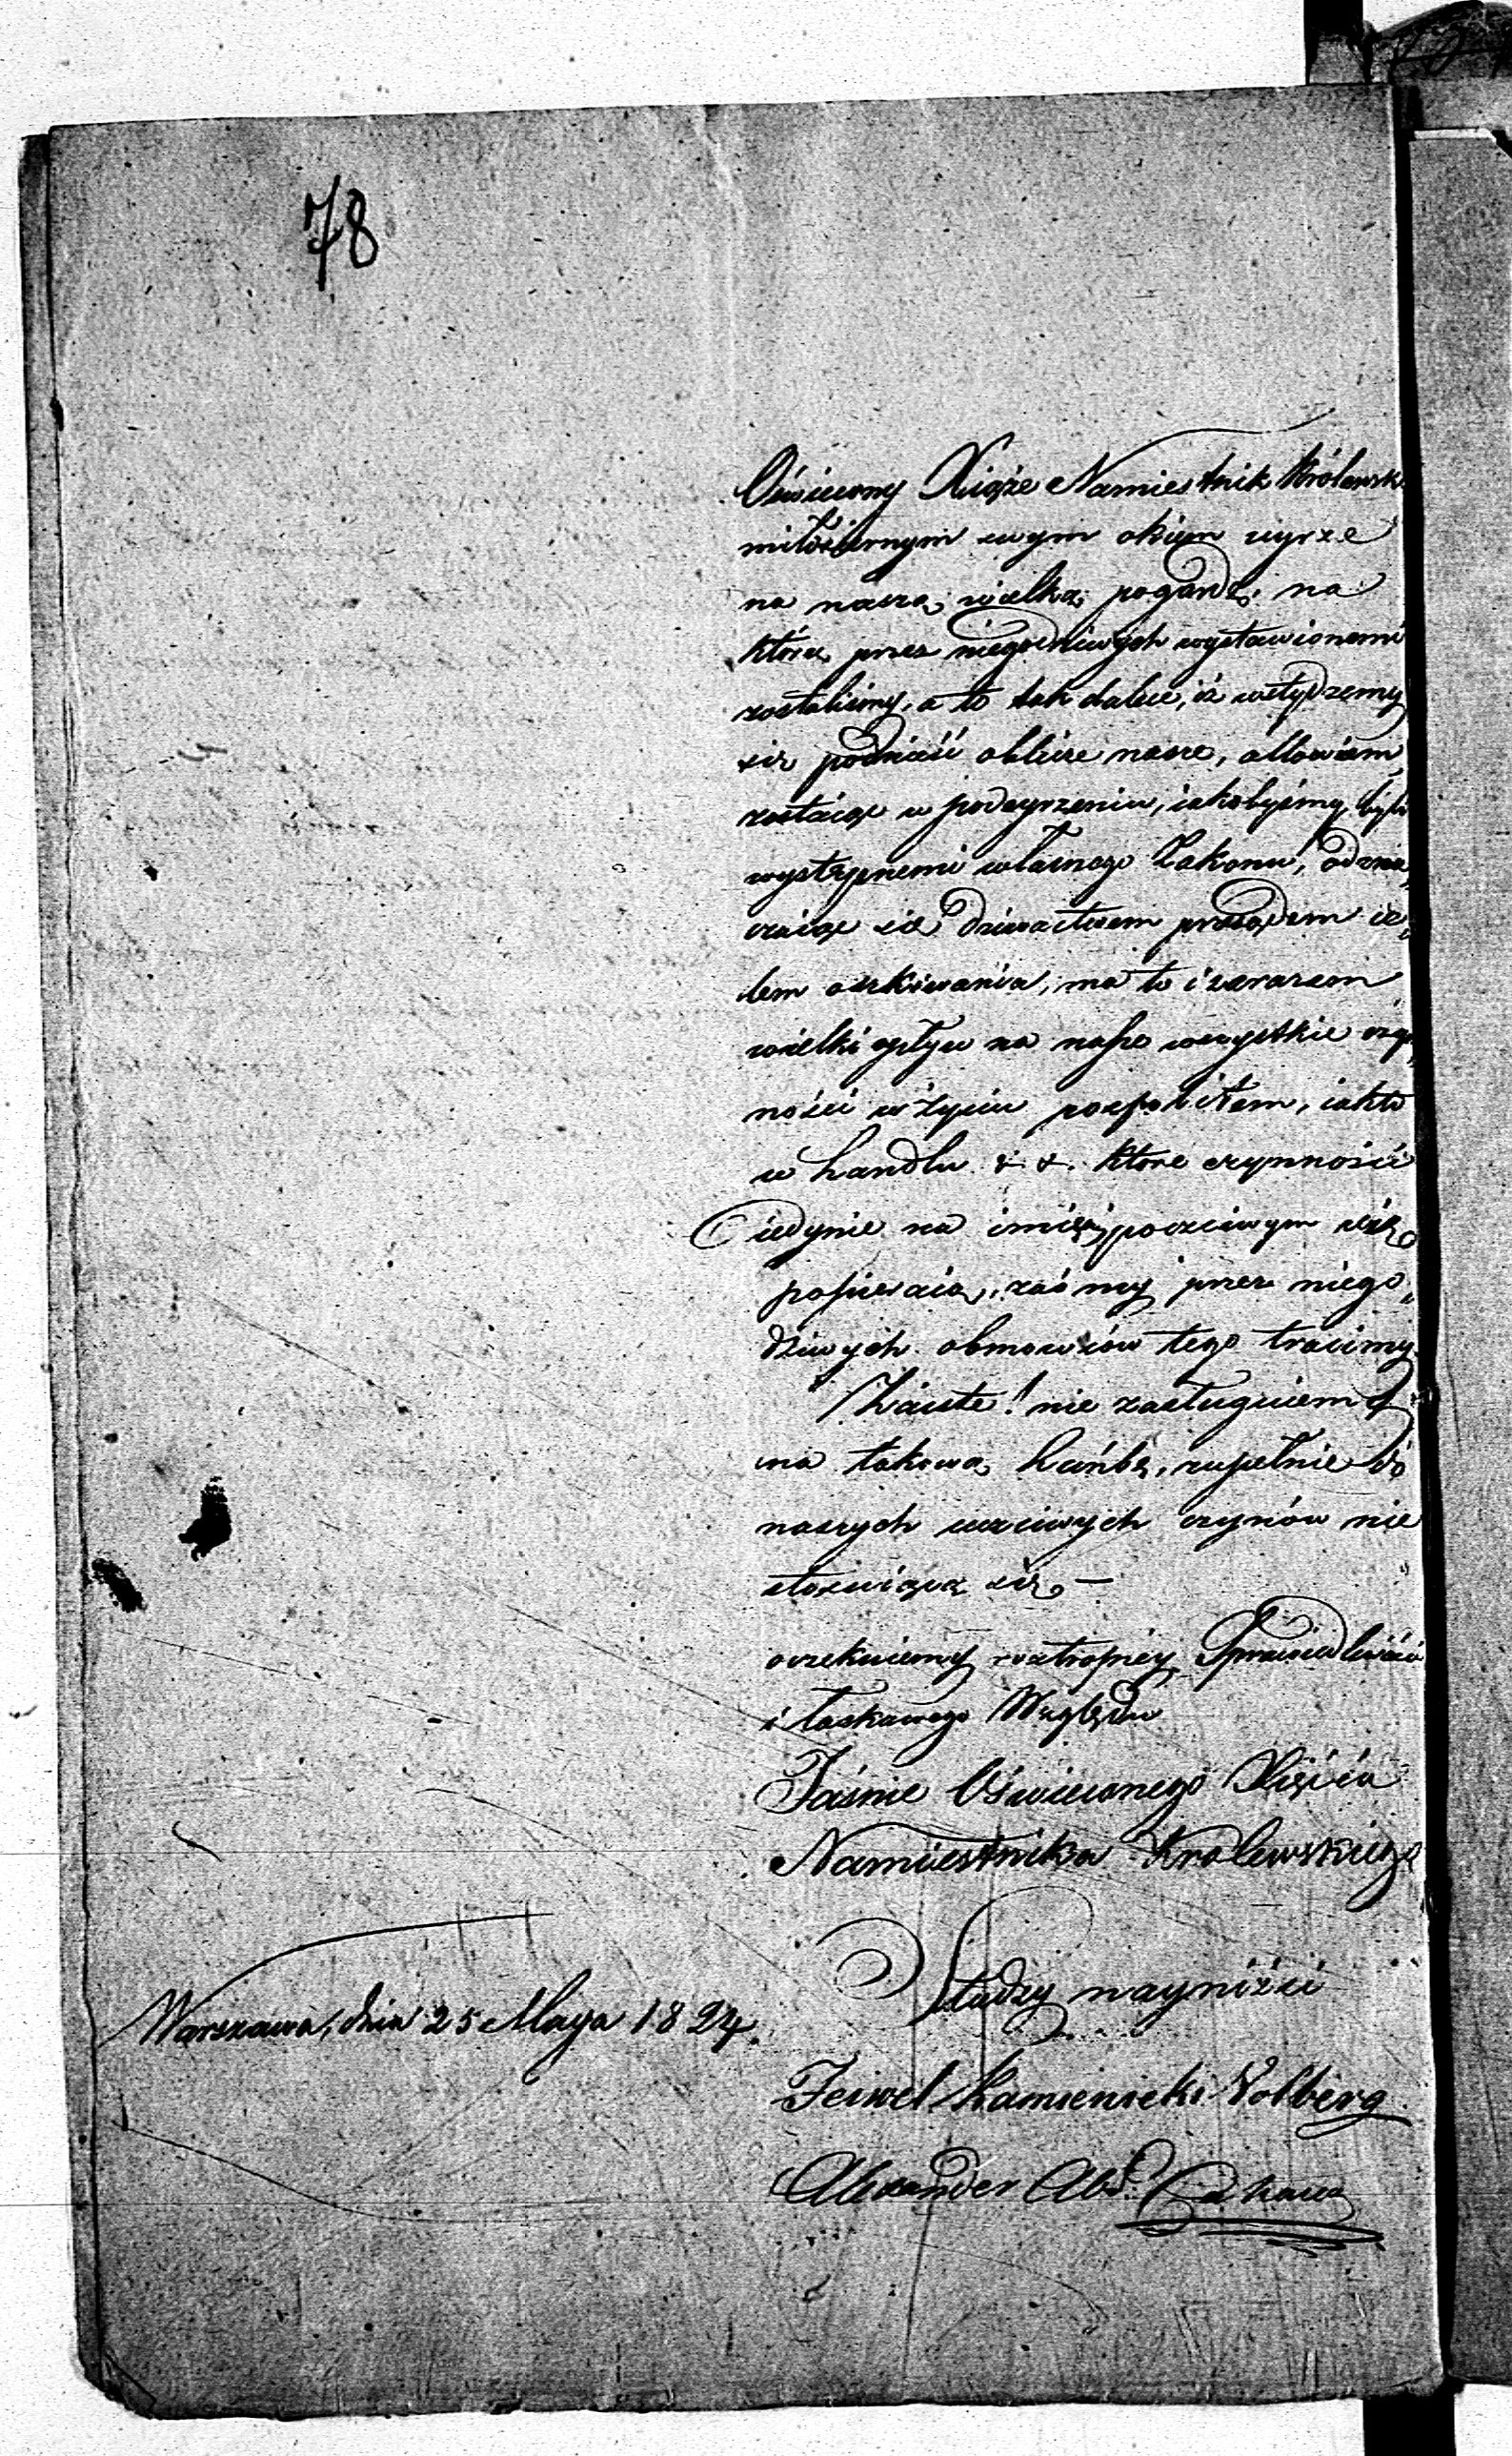 78
Oświecony Xiąże Namiestnik Królewsk
miłosiernym swym okiem uyrze
na naszą wielką pogardę na
którą przez niegodziwych wystawionemi
zostaliśmy, a to tak dalece, iż wstydzemy
się podnieść oblicze nasze, albowiem
zostaiąc w podeyrzeniu, iakobyśmy byli
występnemi własnego Zakonu, odzna„
czaiąc się dziwactwem przesądem ce„
lem oszkiwania, ma to i zarazem
wielki wpływ na nasze wszystkie czyn„
ności w życiu pospolitem, iakto
w handlu & &. które czynności
iedynie na imię poczciwym się
popieraią, zaś my przez niego„
dziwych obmowców tego tracimy.
Zaiste! nie zasługuiemy
na takową hańbę, zupełnie do
naszych uczciwych czynów nie
stosuiącą się —
oczekuiemy roztropney Sprawiedliwości
i łaskawego Względu
Jaśnie Oświeconego Xięćia
Namiestnika Krolewskiego
Słudzy nayniźśi
Warszawa, dnia 25 Maya 1824.
Feiwel Kamienicki Volberg
Alexander Abr.